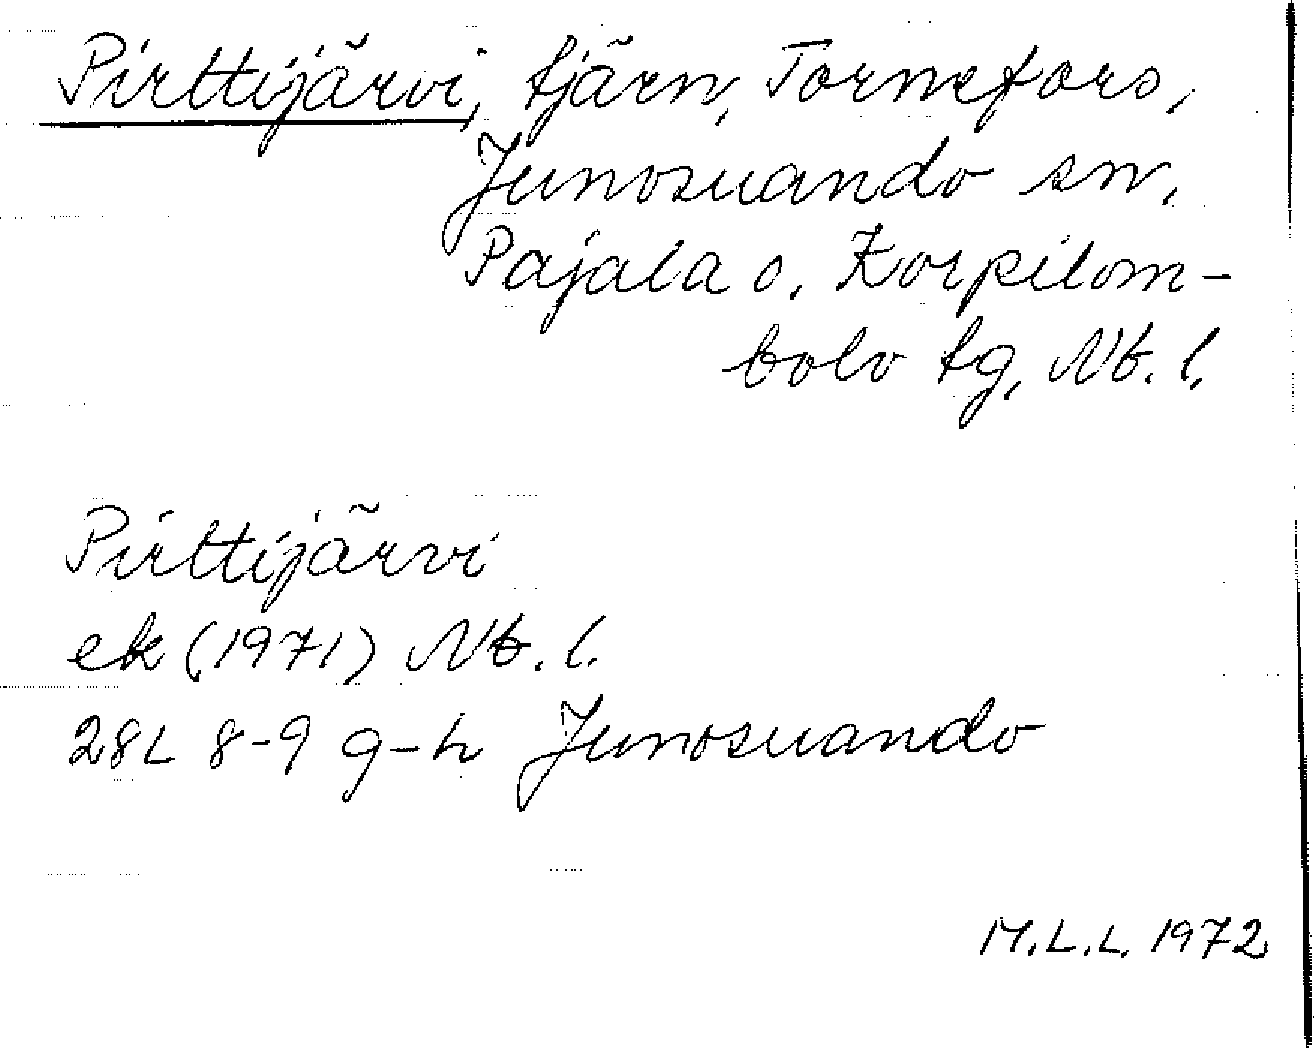 Pirttijärvi, tjärn, Tornefors,
Junosuando sn,
Pajala o. Korpilom-
bolo tg, Nb. l.
Pirttijärvi
ek (1971) Nb. l.
28L 8-9 g-h Junosuando
M.L.L. 1972